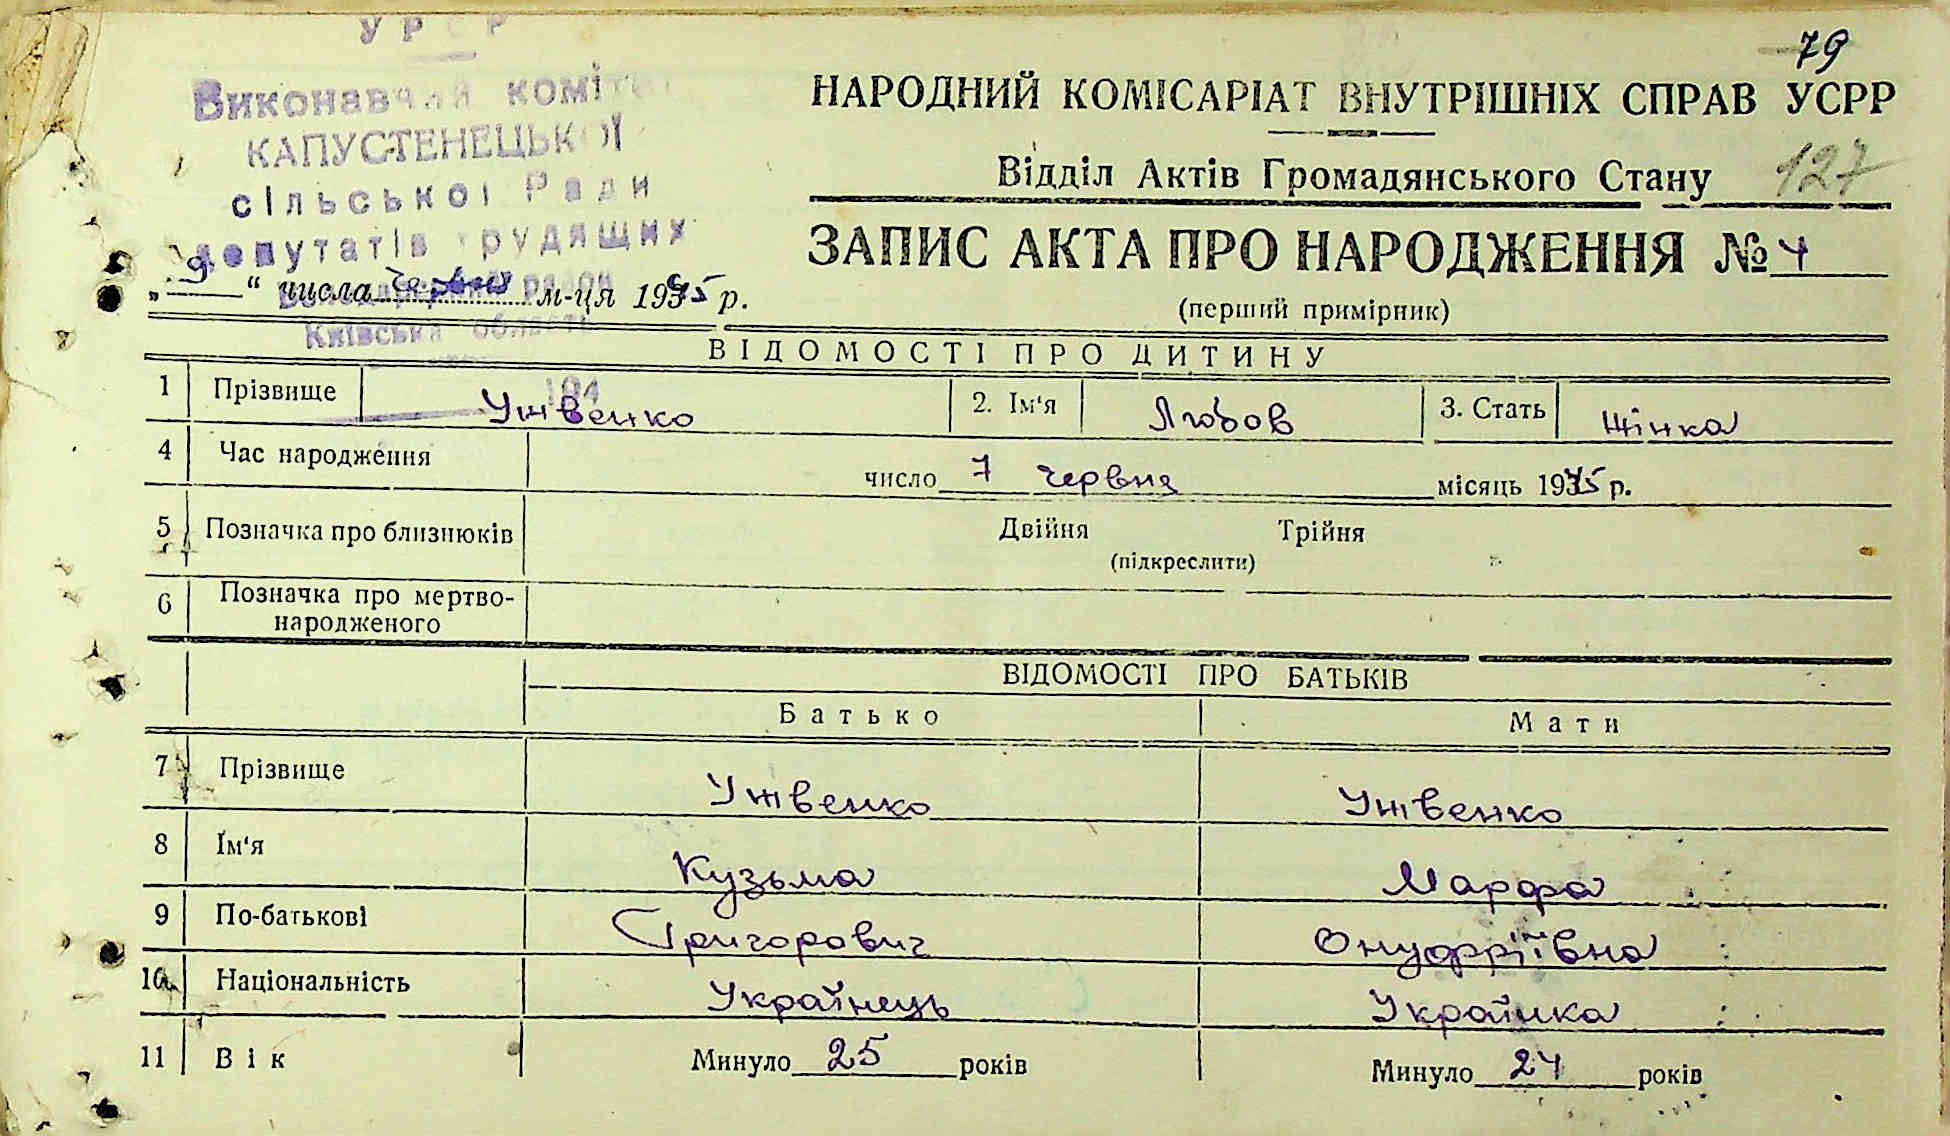 УРСР
79
Виконавчий коміте
КАПУСТЕНЕЦЬКОЇ
сільської Ради
депутатів трудящих
район
Київська область
194
НАРОДНИЙ КОМІСАРІАТ ВНУТРІШНІХ СПРАВ УСРР
Відділ Актів Громадянського Стану 127
ЗАПИС АКТА ПРО НАРОДЖЕННЯ № 4
(перший примірник)
„9“ числа червня м-ця 1945 р.
ВІДОМОСТІ ПРО ДИТИНУ
1 Прізвище Ужвенко 2. Ім'я Любов 3. Стать Жінка
4 Час народження число 7 червня місяць 1945 р.
5 Позначка про близнюків Двійня Трійня
(підкреслити)
6 Позначка про мертво-
народженого
ВІДОМОСТІ ПРО БАТЬКІВ
Батько Мати
7 Прізвище Ужвенко Ужвенко
8 Ім'я Кузьма Марфа
9 По-батькові Григорович Онуфріївна
10 Національність Українець Українка
11 Вік Минуло 25 років Минуло 24 років